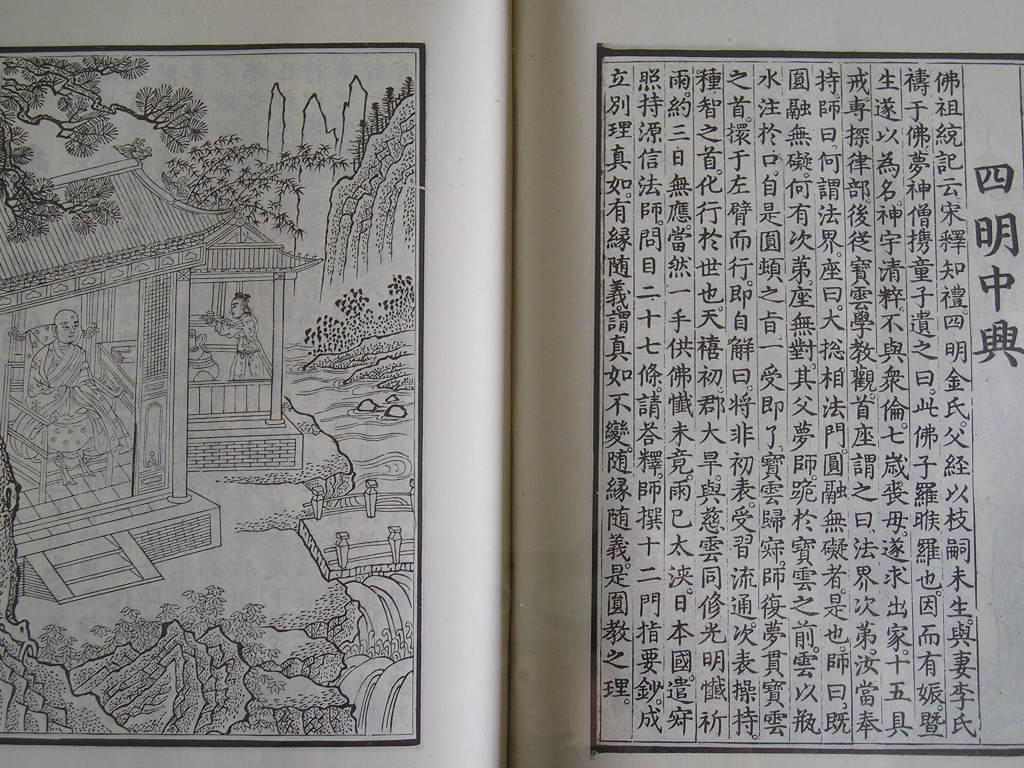 四明中興
佛祖統記云宋釋知禮。四明金氏。父経以枝嗣未生。與妻李氏
禱于佛。夢神僧携童子遺之曰。此佛子羅睺羅也。因而有娠。暨
生遂以為名。神宇清粹。不與衆倫。七歲喪母。遂求出家。十五具
戒專探律部。後從寶雲學教觀。首座謂之曰。法界次第。汝當奉
持。師曰。何謂法界。座曰。大総相法門。圓融無礙者。是也。師曰。既
圓融無礙。何有次第。座無對。其父夢師。跪於寶雲之前。雲以瓶
水注於口。自是圓頓之旨一受即了。寶雲歸寂。師復夢貫寶雲
之首。擐于左臂而行。即自解曰。將非初表。受習流通。次表操持。
種智之首。化行於世也。天禧初郡大旱。與慈雲同修光明懺祈
雨。約三日無應。當然一手供佛。懺未竟。雨已太浹。日本國。遣寂
照持源信法師。問目二十七條。請荅釋。師撰十二門指要鈔。成
立別理真如。有緣随義謂真如不變随緣随義。是圓教之理。